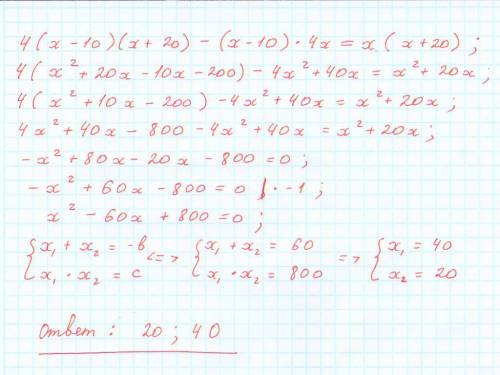 4(x-10)(x+20)-(x-10)·4x=x(x+20);
4(x²+20x-10x-200)-4x²+40x=x²+20x;
4(x²+10x-200)-4x²+40x=x²+20x;
4x²+40x-800-4x²+40x=x²+20x;
-x²+80x-20x-800=0;
-x²+60x-800=0 |·-1;
x²-60x+800=0;
{x₁+x₂=-b <=> {x₁+x₂=60 => {x₁=40
x₁·x₂=c x₁·x₂=800 x₂=20
Ответ: 20; 40